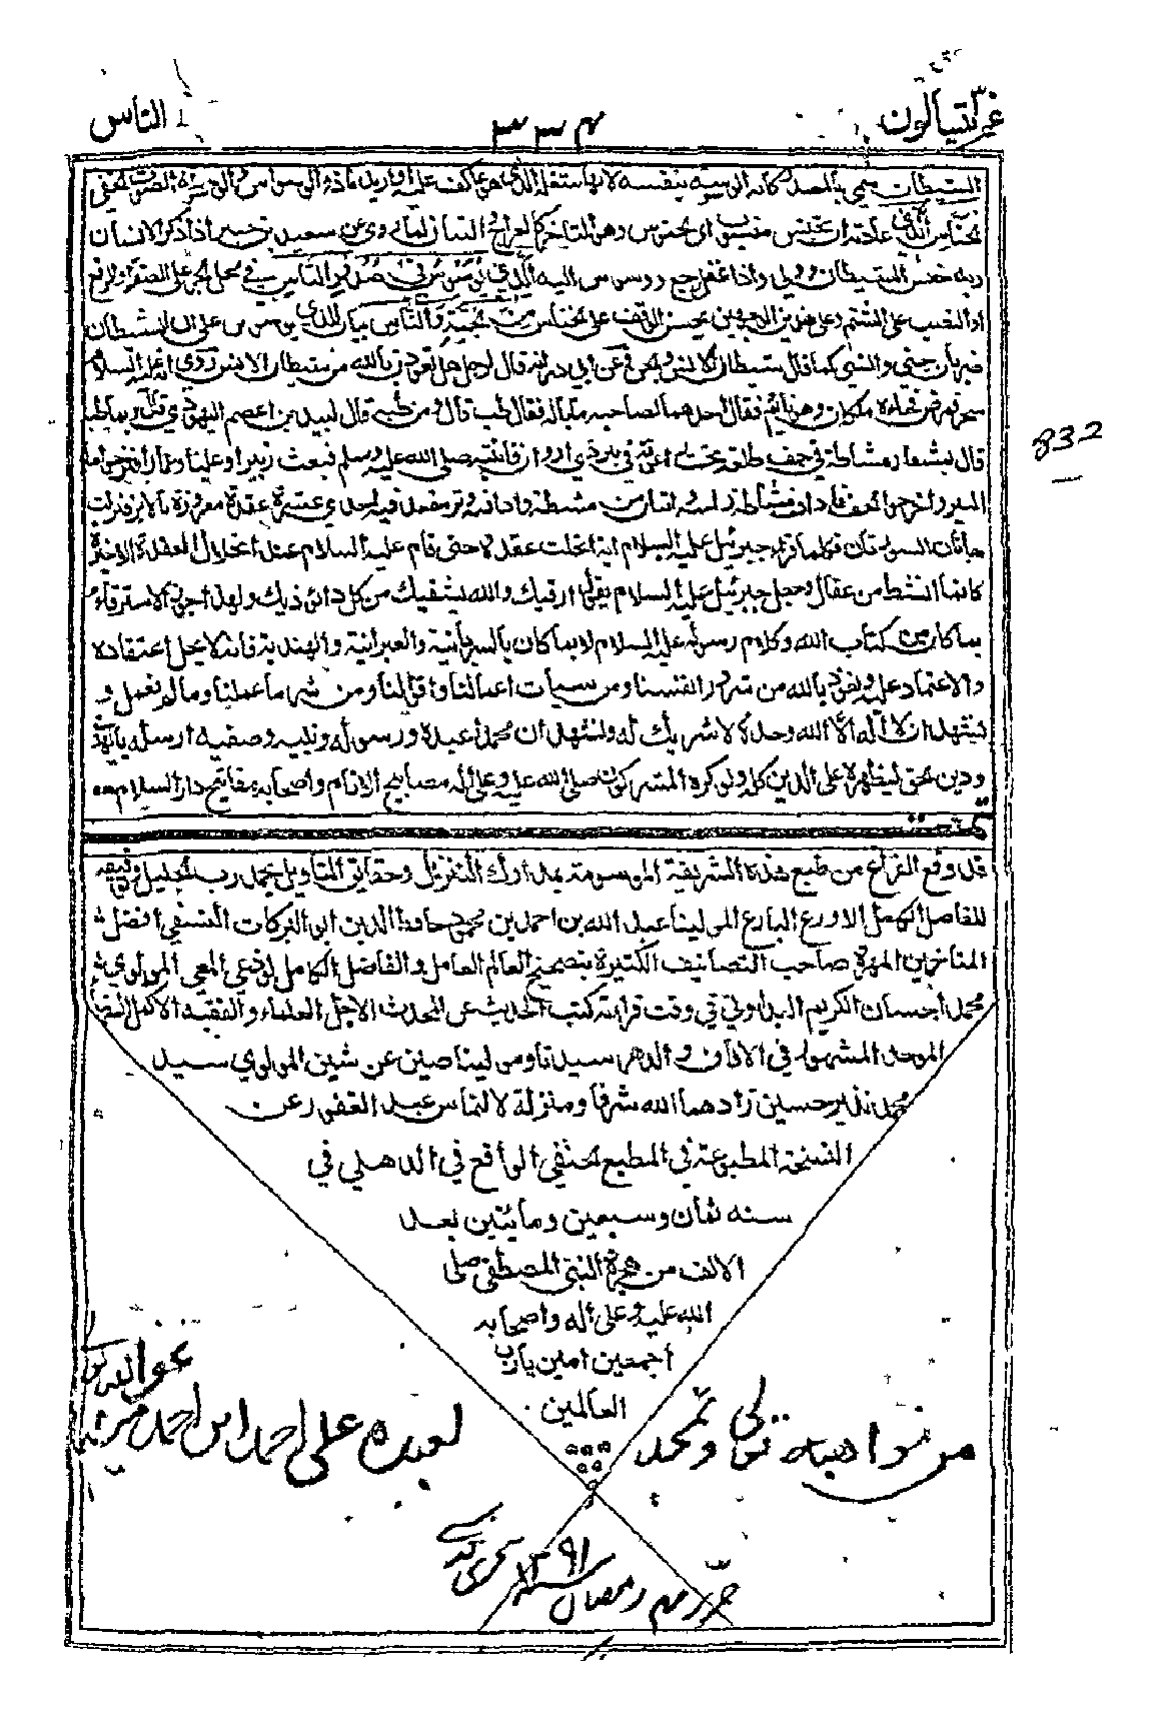 الناس
الشيطان سمي بالمصدر كانه الوسوسة بنفسه لانها شغله الذي هو عاكف عليه او اريد ذو الوسواس والوسوسة الصوت الخفي
الخناس الذي عادته ان يخنس منسوب الى الخنوس وهو التاخر كالعواج والبتات لما روي عن سعيد بن جبير اذا ذكر الانسان
ربه خنس الشيطان وولى واذا غفل رجع ووسوس اليه الذي يوسوس في صدور الناس في محل الجر على الصفة او الرفع
او النصب على الشتم وعلى هذين الوجهين يحسن الوقف على الخناس من الجنة والناس بيان للذي يوسوس على ان الشيطان
ضربان جني وانسي كما قال شياطين الانس والجن وعن ابي ذر انه قال لرجل هل تعوذت بالله من شيطان الانس روي انه عليه السلام
سحر فمرض فجاءه ملكان وهو نائم فقال احدهما لصاحبه ما باله فقال طب قال ومن طبه قال لبيد بن اعصم اليهودي قال وبم طبه
قال بمشط ومشاطة في جف طلعة تحت راعوفة في بئر ذي اروان فانتبه صلى الله عليه وسلم فبعث زبيرا وعليا وعمارا فنزحوا ماء
البير واخرجوا الجف فاذا فيه مشاطة راسه واسنان من مشطه واذا فيه وتر معقد فيه احدى عشرة عقدة مغروزة بالابر فنزلت
هاتان السورتان فكلما قرأ جبرئيل عليه السلام اية انحلت عقدة حتى قام عليه السلام عند انحلال العقدة الاخيرة
كانما انشط من عقال وجعل جبرئيل عليه السلام يقول ارقيك والله يشفيك من كل داء يوذيك ولهذا جوز الاسترقاء
بما كان من كتاب الله وكلام رسوله عليه السلام لا بما كان بالسريانية والعبرانية والهندية فانه لا يحل اعتقاده
والاعتماد عليه ونعوذ بالله من شرور انفسنا ومن سيات اعمالنا واقوالنا ومن شر ما عملنا وما لم نعمل و
نشهد ان لا اله الا الله وحده لا شريك له ونشهد ان محمدا عبده ورسوله ونبيه وصفيه ارسله بالهدى
ودين الحق ليظهره على الدين كله ولو كره المشركون صلى الله عليه وعلى اله مصابيح الانام واصحابه مفاتيح دار السلام
تمت
قد وقع الفراغ من طبع هذه الشريفة الموسومة بمدارك التنزيل وحقايق التاويل بحمد رب الجليل
للفاضل الاورع البارع المولينا عبد الله بن احمد بن محمود حافظ الدين ابو البركات النسفي افضل
المتاخرين المهرة صاحب التصانيف الكثيرة بتصحيح العالم العامل والفاضل الكامل لوذعي المعي المولوي
محمد احسان الكريم البداوني في وقت قراءته كتب الحديث عن المحدث الاجل العلماء والفقيه الاكمل
الموحد المشهور في الافاق والدهر سيدنا ومولينا صين عن شين المولوي سيد
محمد نذير حسين زادهما الله شرفا ومنزلة لالتماس عبد الغفور عن
النسخة المطبوعة في المطبع الحنفي الواقع في الدهلي في
سنة ثمان وسبعين ومائتين بعد
الالف من هجرة النبي المصطفى صلى
الله عليه وعلى اله واصحابه
اجمعين امين يا رب
العالمين
832
من مواهب
لعبده علي احمد ابن احمد
رمضان ١٣٩١